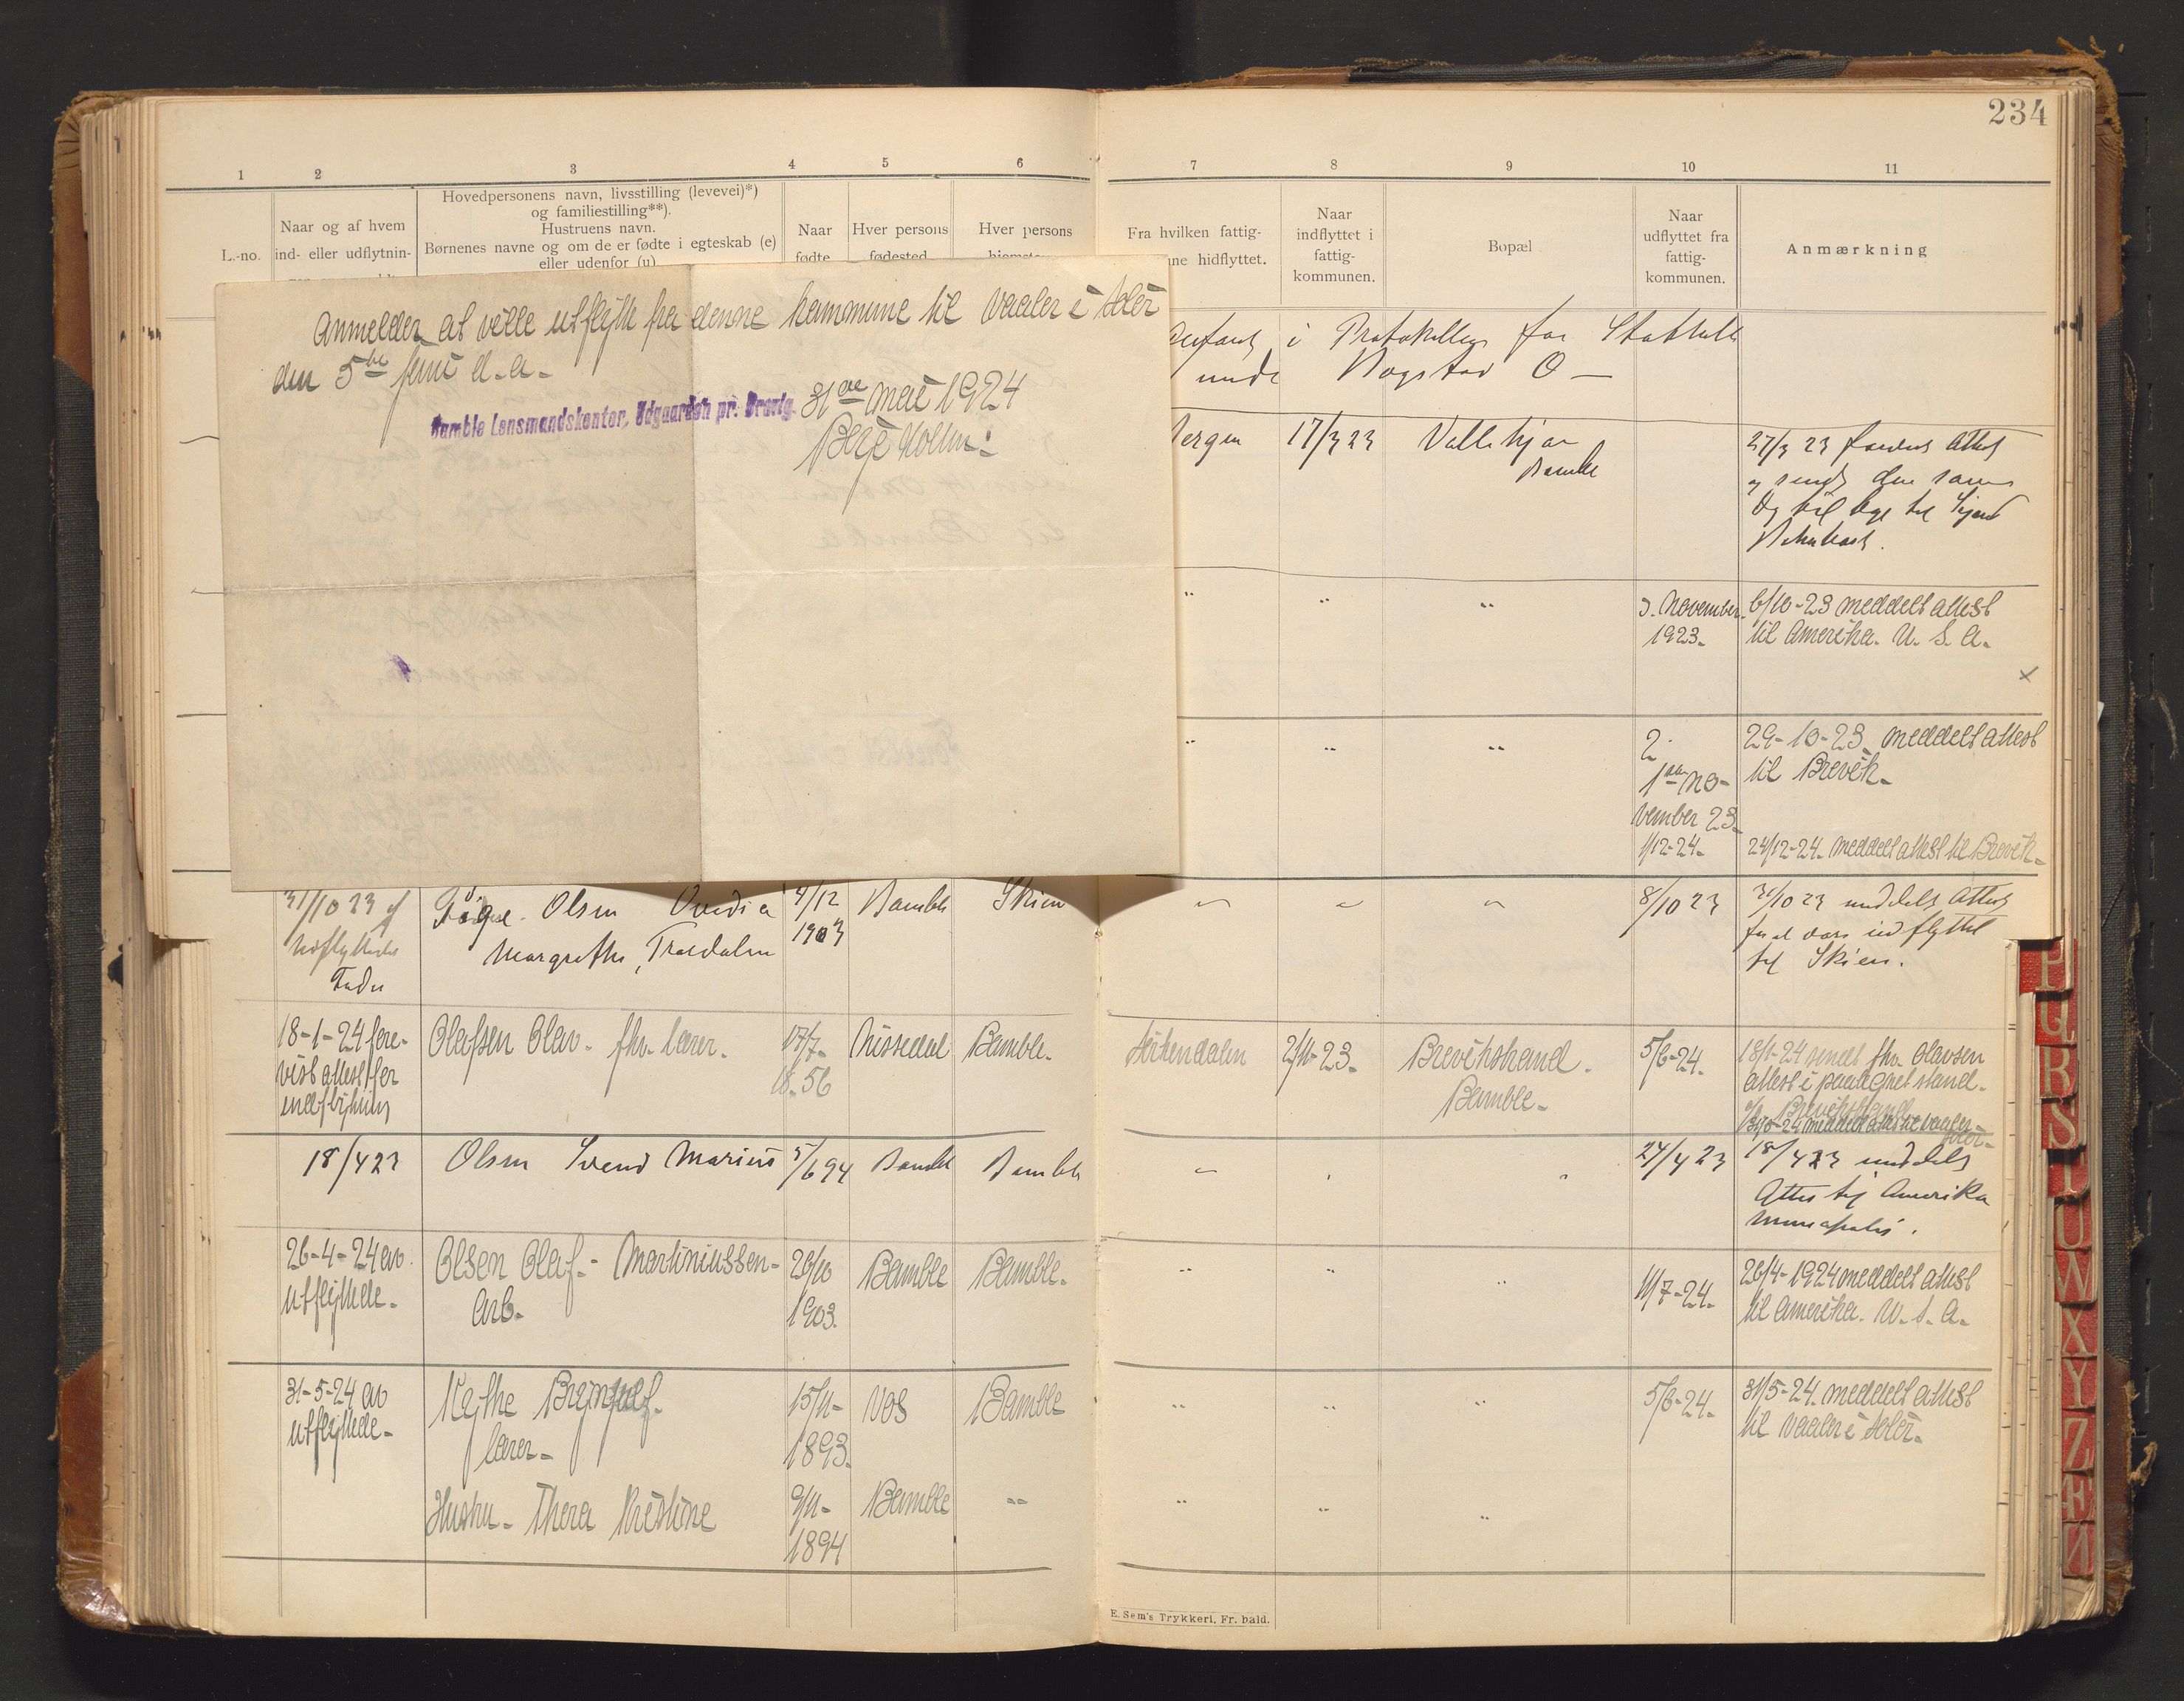 234
1 2 3 4 5 6 7 8 9 10 11
L.-no.
Naar og af hvem
ind- eller udflytnin-
Hovedpersonens navn, livsstilling (levevei)*)
og familiestilling**).
Hustruens navn.
Børnenes navne og om de er fødte i egteskab (e)
eller udenfor (u)
Naar
fødte
Hver persons
fødested
Hver persons
Fra hvilken fattig-
ne hidflyttet.
Naar
indflyttet i
fattig-
kommunen.
Bopæl
Naar
udflyttet fra
fattig-
kommunen.
Anmærkning
Anmelder at ville utflytte fra denne kommune til Vaaler i Solør
den 5te juni d.a.
Bamble Lensmandskontor, Udgaarden pr. Brevig.
31 mai 1924
i Protokollen for
Bergen 17/3 23 Vallekjær
Bamble
27/3 23
" " " November 6/10-23 meddelt attest
1923. til Amerika. U. S. A.
x
" " " 2. 29-10-23 meddelt attest
1ste No- til Brevik.
vember 23
1/12-24. 24/12-24. meddelt attest til Brevik.
31/10 23 af Pige. Olsen Ovedia 4/12 Bamble Skien " " " 8/10 23 31/10 23 meddelt attest
Margrethe, Trosdalen 1903
indflyttet
Fader til Skien.
18-1-24 fore- Olafsen Olav. fhv. lærer. 17/7- Nissedal Bamble. Hitterdalen 2/11-23. Brevikstrand. 5/6-24. 18/1-24 sendt fhv. Olavsen
vist attest for 18.56 Bamble. attest i paategnet stand.
indflytning Brevikstrand
31/5-24 meddelt attest til Vaaler
Solør.
18/4 23 Olsen Svend Marius 5/6 94 Bamble Bamble " " " 24/4 23 18/4 23 meddelt
Attest til Amerika
26-4-24 av Olsen Olaf. Martiniussen- 26/10 Bamble Bamble. " " " 11/7-24. 26/4-1924 meddelt attest
utflyttede. Arb. 1903. til Amerika. U. S. A.
31-5-24 av 15/11- Vos Bamble " " " 5/6-24. 31/5-24. meddelt attest
utflyttede. lærer. 1893. til Vaaler i Solør.
Hustru. Thora Kristine 9/11- Bamble " " " "
1894
E. Sem's Trykkeri, Fr. hald.
P
Q
R
S
T
U
W
X
Y
Z
Æ
Ø